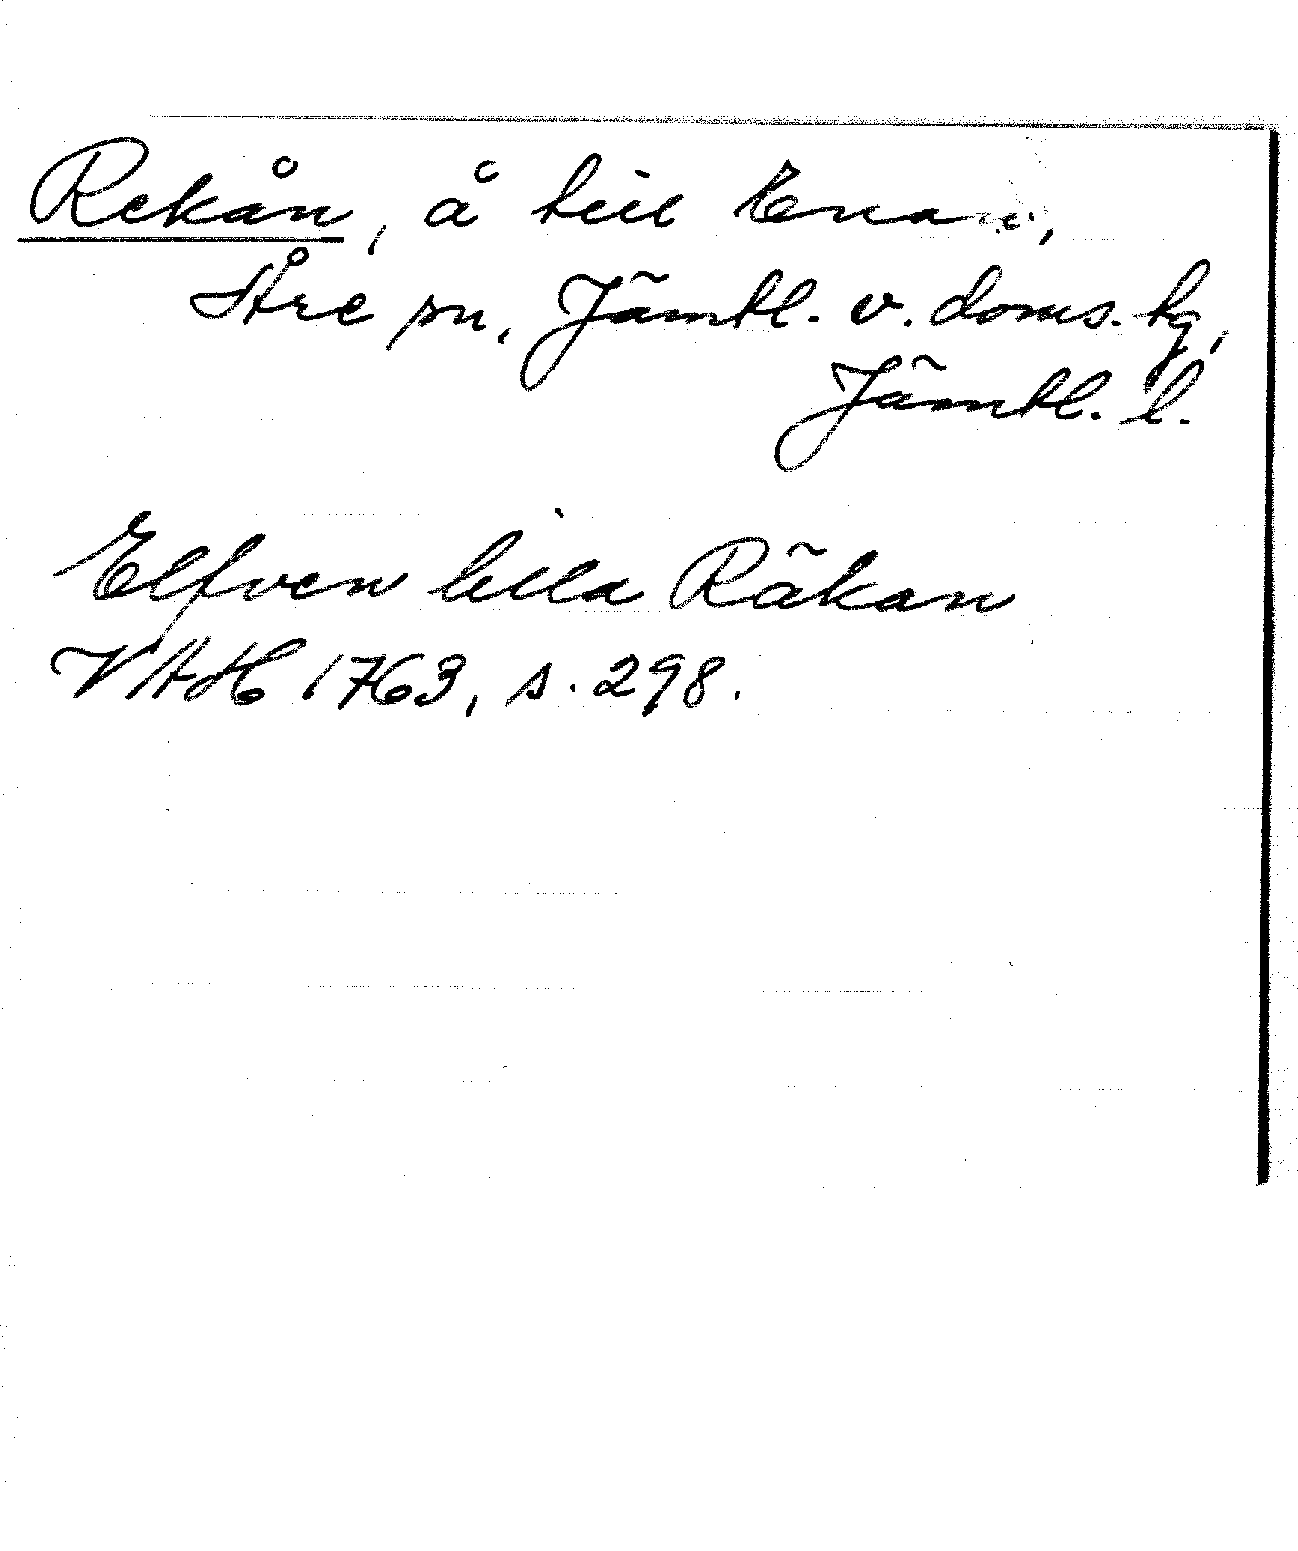 Rekån, å till Enan,
Åre sn, Jämtl. v. doms. tg,
Jämtl. l.
Elfven lilla Räkan
VAH 1763, s. 298.